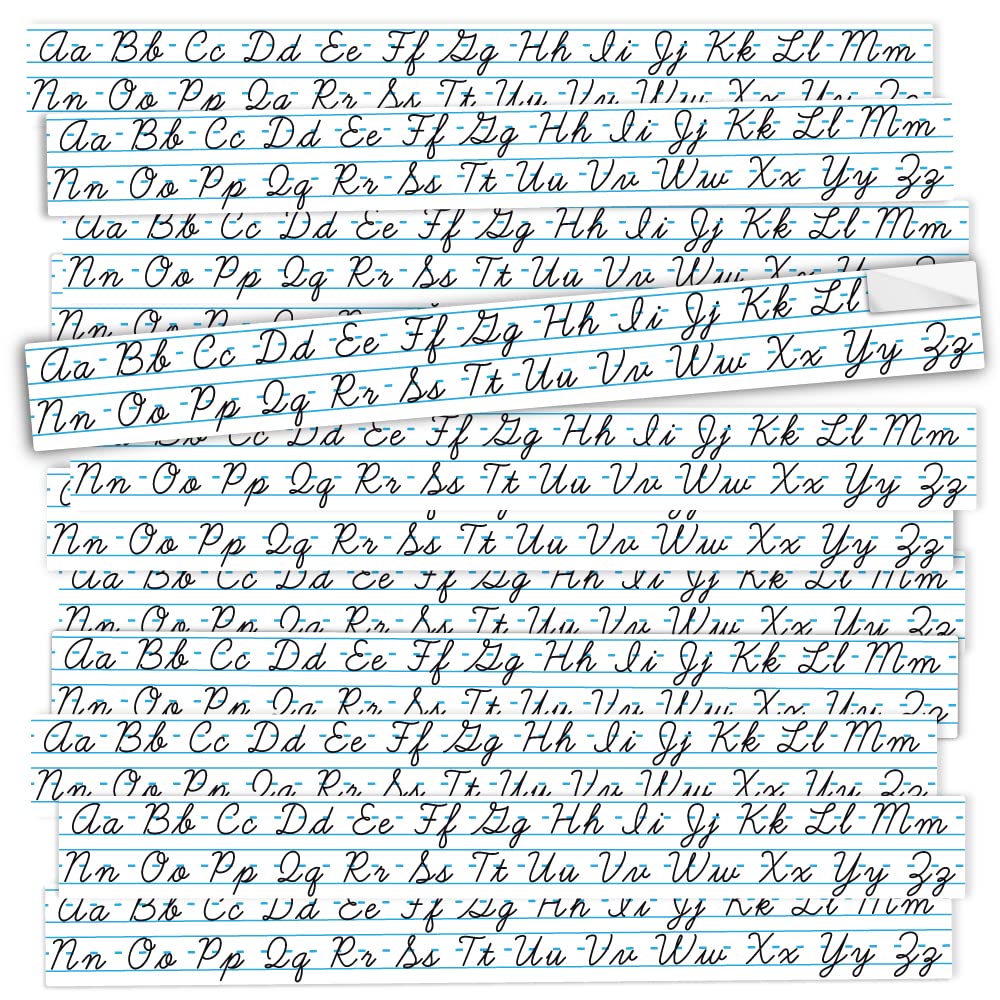 Aa Bb Cc Dd Ee Ff Gg Hh Ii Jj Kk Ll Mm
Nn Oo Pp Qq Rr Ss Tt Uu Vv Ww Xx Yy Zz
Aa Bb Cc Dd Ee Ff Gg Hh Ii Jj Kk Ll Mm
Nn Oo Pp Qq Rr Ss Tt Uu Vv Ww Xx Yy Zz
Aa Bb Cc Dd Ee Ff Gg Hh Ii Jj Kk Ll Mm
Nn Oo Pp Qq Rr Ss Tt Uu Vv Ww Xx
Nn Oo Pp
Aa Bb Cc Dd Ee Ff Gg Hh Ii Jj Kk Ll
Nn Oo Pp Qq Rr Ss Tt Uu Vv Ww Xx Yy Zz
Bb Cc Dd Ee Ff Gg Hh Ii Jj Kk Ll Mm
Nn Oo Pp Qq Rr Ss Tt Uu Vv Ww Xx Yy Zz
Nn Oo Pp Qq Rr Ss Tt Uu Vv Ww Xx Yy Zz
Aa Bb Cc Dd Ee Ff Gg Hh Ii Jj Kk Ll Mm
Nn Oo Pp Qq Rr Ss Tt Uu Vv Ww Xx Yy Zz
Aa Bb Cc Dd Ee Ff Gg Hh Ii Jj Kk Ll Mm
Nn Oo Pp Qq Rr Ss Tt Uu Vv Ww Xx Yy Zz
Aa Bb Cc Dd Ee Ff Gg Hh Ii Jj Kk Ll Mm
Nn Oo Pp Qq Rr Ss Tt Uu Vv Ww Xx Yy Zz
Aa Bb Cc Dd Ee Ff Gg Hh Ii Jj Kk Ll Mm
Nn Oo Pp Qq Rr Ss Tt Uu Vv Ww Xx Yy Zz
Aa Bb Cc Dd Ee Ff Gg Hh Ii Jj Kk Ll Mm
Nn Oo Pp Qq Rr Ss Tt Uu Vv Ww Xx Yy Zz